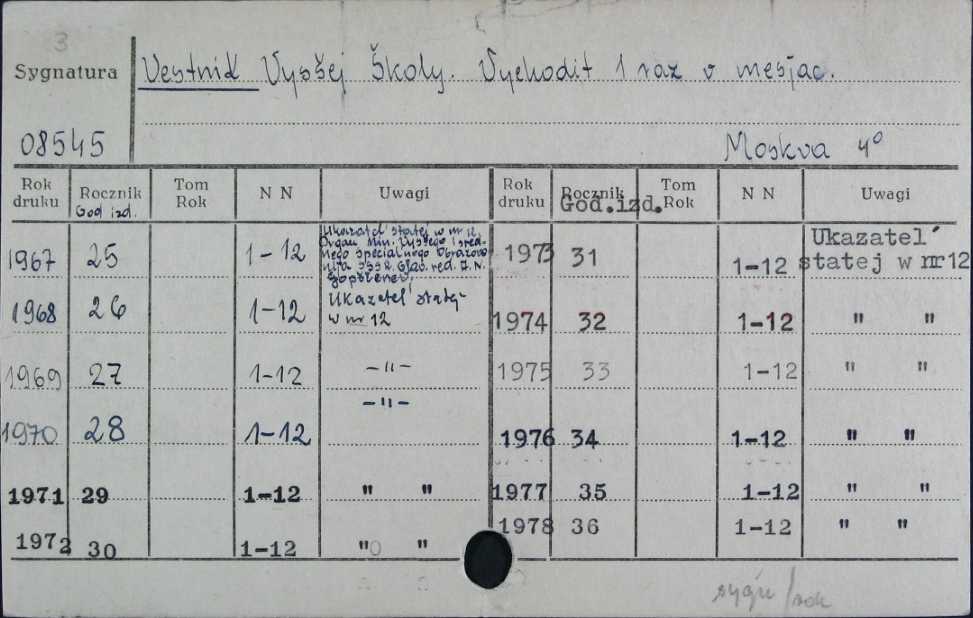 3
Sygnatura
Vestnik Vysšej Školy. Vychodit 1 raz v mesjac.
08545
Moskva 4°
Rok druku Rocznik God izd. Tom Rok N N Uwagi Rok druku Rocznik God.izd. Tom Rok N N Uwagi
1967 25 1-12
Ukazatel' statej w nr 12.
Organ Min. Vysšego i sred-
nego specialnego Obrazova
nija SSSR. Glav. red. I. N.
1968 26 1-12 Ukazatel' statej
w nr 12
1969 27 1-12 -"-
1970 28 1-12 -"-
1971 29 1-12 " "
1972 30 1-12 " "
1973 31 1-12 Ukazatel' statej w nr 12
1974 32 1-12 " "
1975 33 1-12 " "
1976 34 1-12 " "
1977 35 1-12 " "
1978 36 1-12 " "
sygn/rok